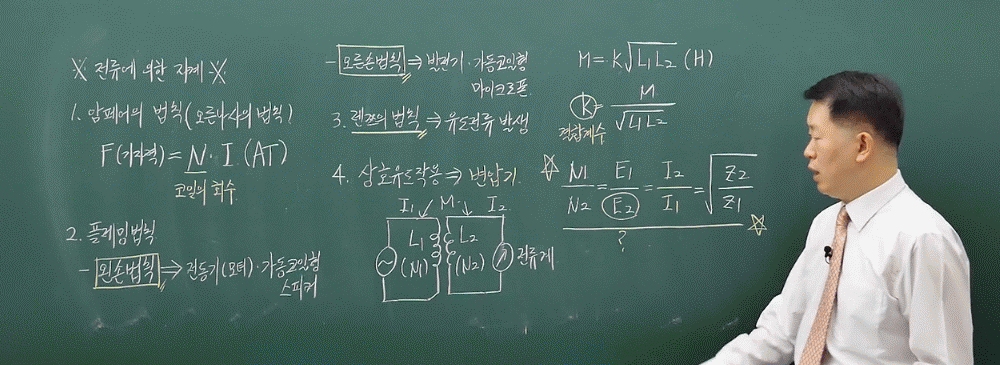 ※ 전류에 의한 자계 ※
1. 암페어의 법칙(오른나사의 법칙)
F(기자력) = N · I (AT)
코일의 회수
2. 플레밍법칙
- 왼손법칙 ⇒ 전동기(모터) · 가동코일형
스피커
- 오른손법칙 ⇒ 발전기 · 가동코일형
마이크로폰
3. 렌쯔의 법칙 ⇒ 유도전류 발생
4. 상호유도작용 ⇒ 변압기
I1 M I2
L1 L2
(N1) (N2) 전류계
M = K√L1L2 (H)
K = M/√L1L2
결합계수
☆ N1/N2 = E1/E2 = I2/I1 = √Z2/Z1 ☆
?